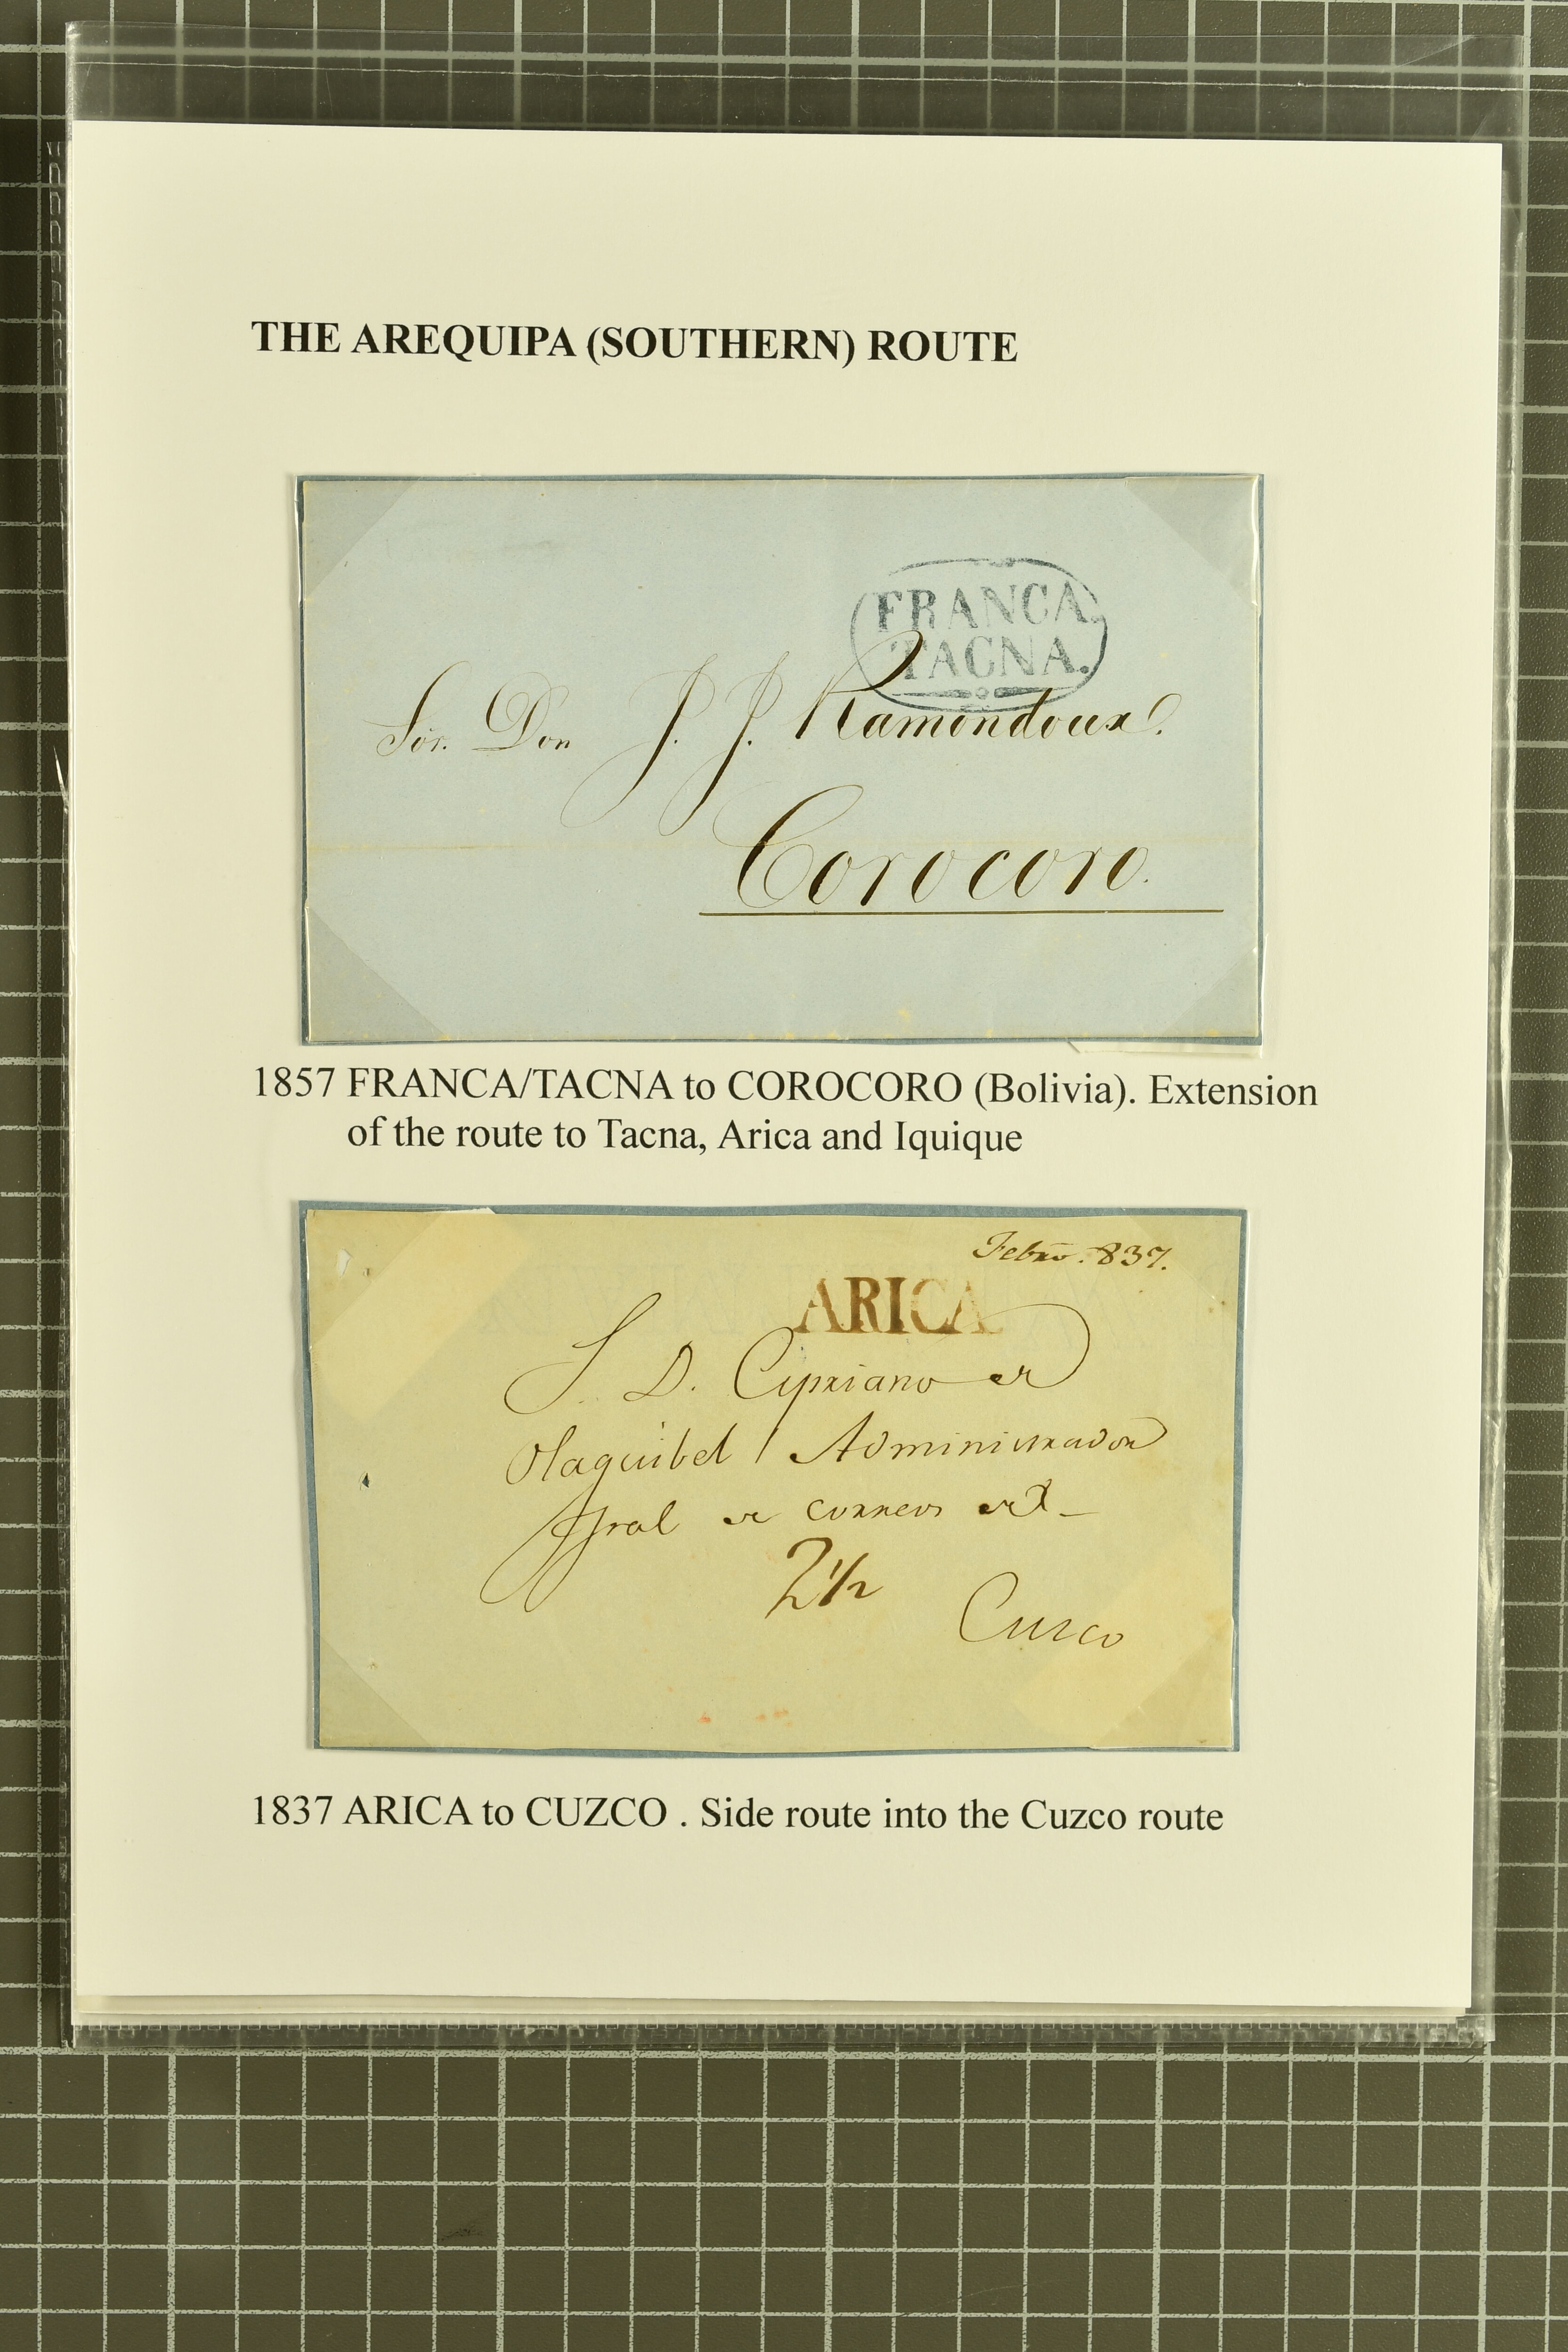 THE AREQUIPA (SOUTHERN) ROUTE
FRANCA.
TACNA.
Sor. Don J. J. Ramondoux.
Corocoro.
1857 FRANCA/TACNA to COROCORO (Bolivia). Extension
of the route to Tacna, Arica and Iquique
Febro. 837.
ARICA
S. D. Cipriano de
Olaguibel Administrador
Gral de correos del
2 1/2
Cuzco
1837 ARICA to CUZCO . Side route into the Cuzco route